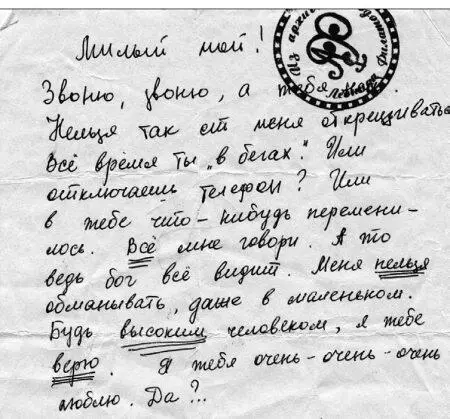 Из архива
Милый мой!
Звоню, звоню, а тебя .
Нельзя так от меня открещивать
Всё время ты „в бегах". Или
отключаешь телефон? Или
в тебе что-нибудь перемени-
лось. Всё мне говори. А то
ведь бог всё видит. Меня нельзя
обманывать, даже в маленьком.
Будь высоким человеком, я тебе
верю. Я тебя очень-очень-очень
люблю. Да?..